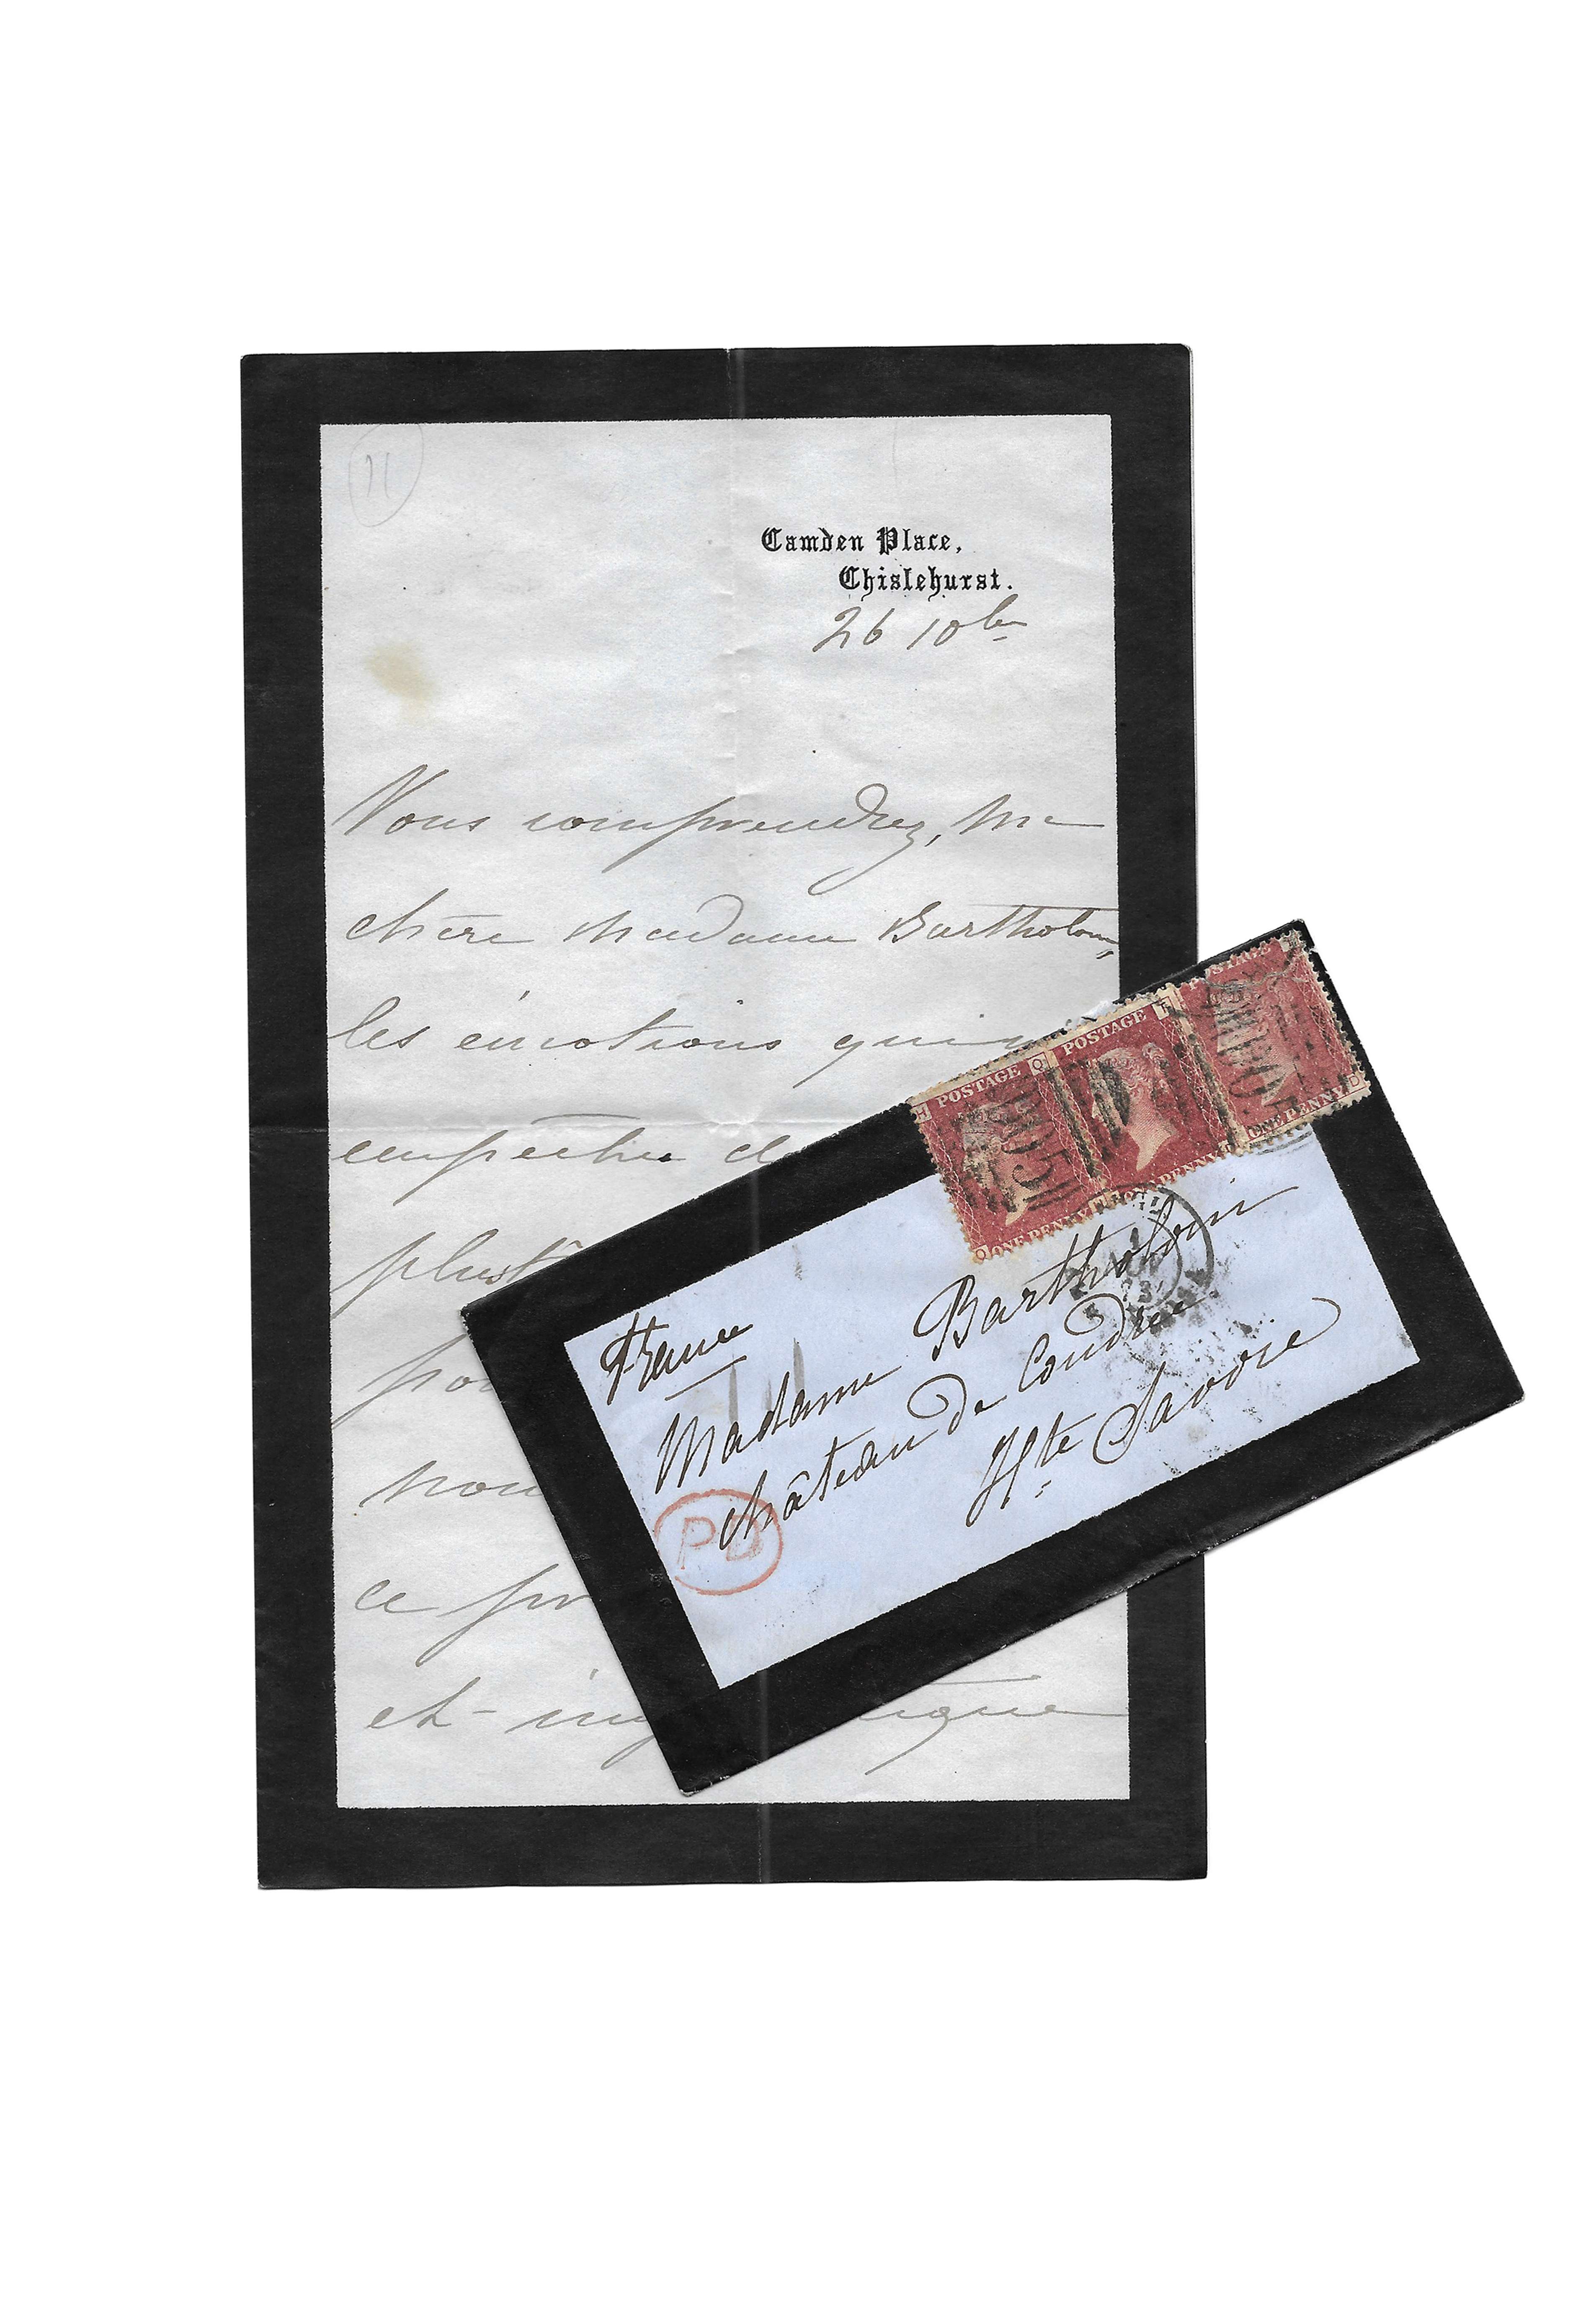 Camden Place,
Chislehurst.
26 10bre
Vous comprendrez, ma
chère Madame Bartholoni,
les émotions qui m
empêcher d
plustô
po
nou
ce pr
et
POSTAGE
POSTAGE
ONE PENNY
ONE PENNY
France
Madame Bartholoni
château de Coudrée
Hte Savoie
PD